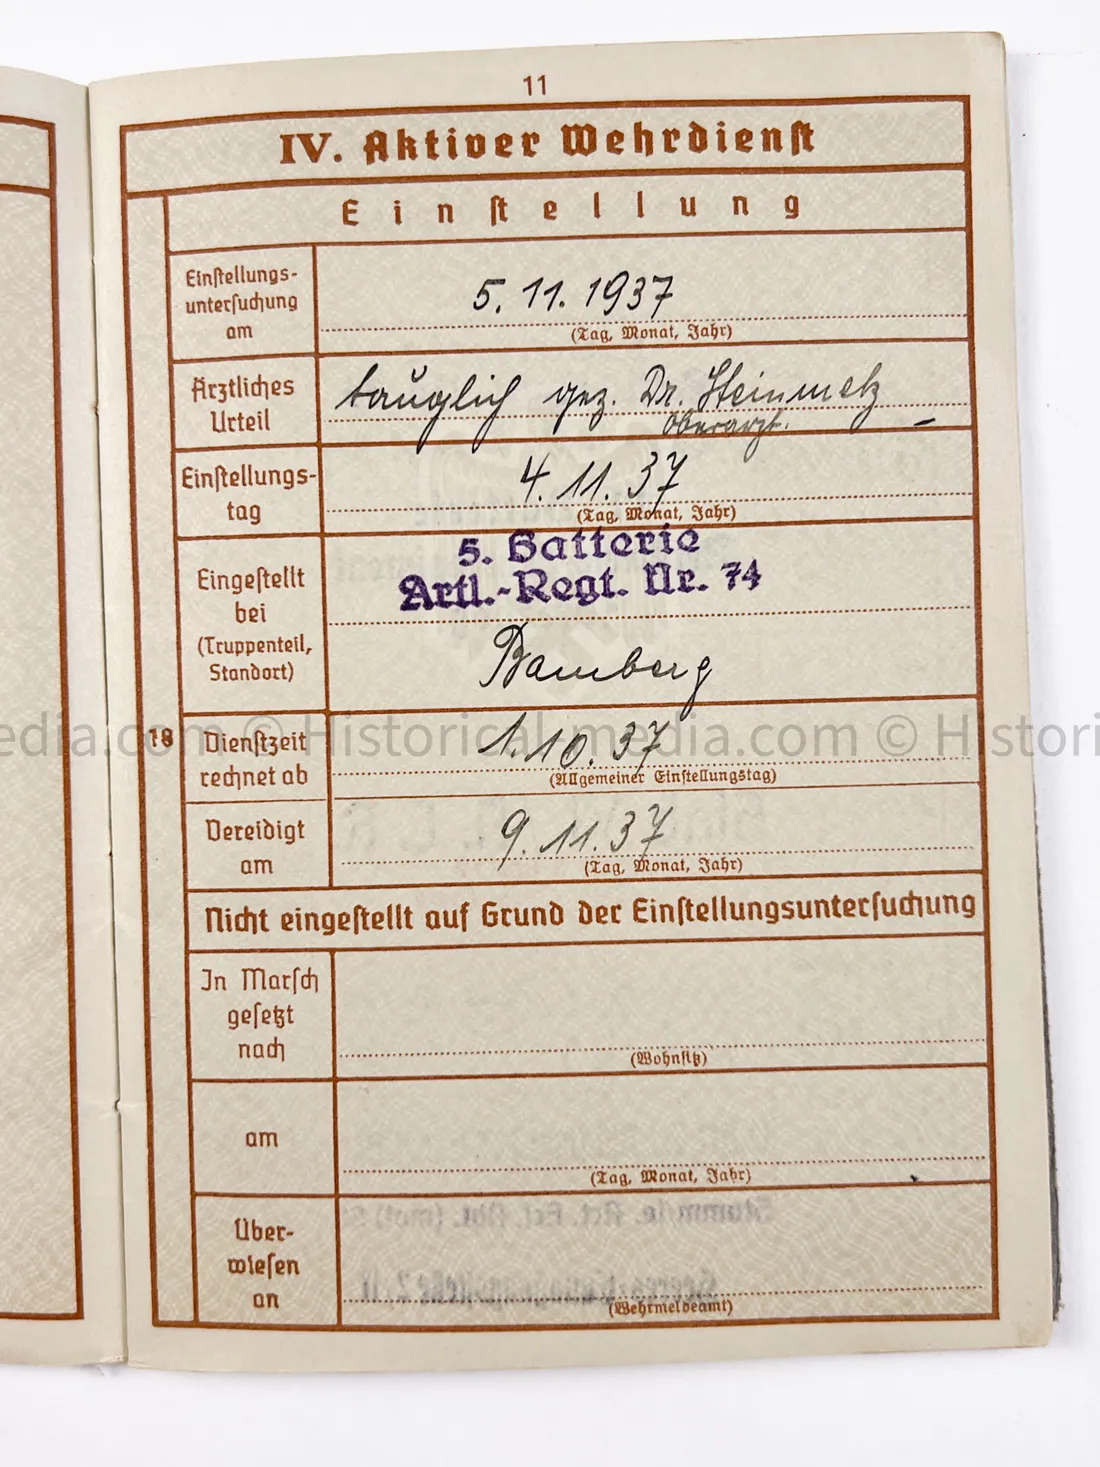 11
IV. Aktiver Wehrdienst
Einstellung
Einstellungs-
untersuchung
am
5. 11. 1937
(Tag, Monat, Jahr)
Ärztliches
Urteil
tauglich gez. Dr. Steinmetz
Oberarzt. –
Einstellungs-
tag
4. 11. 37
(Tag, Monat, Jahr)
Eingestellt
bei
(Truppenteil,
Standort)
5. Batterie
Artl.-Regt. Nr. 74
Bamberg
18
Dienstzeit
rechnet ab
1. 10. 37
(Allgemeiner Einstellungstag)
Vereidigt
am
9. 11. 37
(Tag, Monat, Jahr)
Nicht eingestellt auf Grund der Einstellungsuntersuchung
In Marsch
gesetzt
nach
(Wohnsitz)
am
(Tag, Monat, Jahr)
Über-
wiesen
an
(Wehrmeldeamt)
edia.com © Historical-media.com © Histori